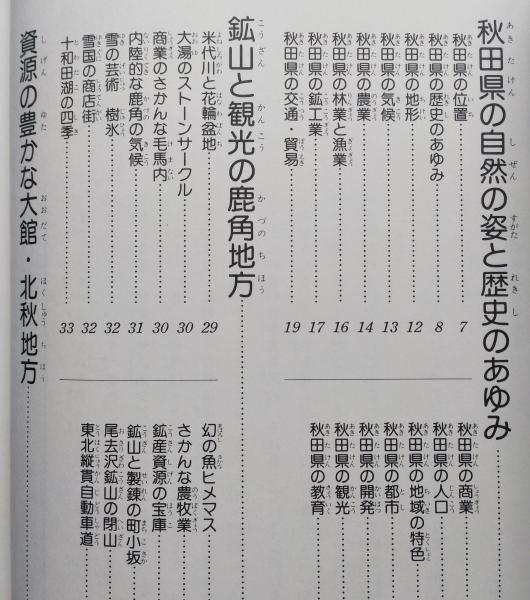 秋田県の自然の姿と歴史のあゆみ
秋田県の位置 7
秋田県の歴史のあゆみ 8
秋田県の地形 12
秋田県の気候 13
秋田県の農業 14
秋田県の林業と漁業 16
秋田県の鉱工業 17
秋田県の交通・貿易 19
秋田県の商業
秋田県の人口
秋田県の地域の特色
秋田県の都市
秋田県の開発
秋田県の観光
秋田県の教育
鉱山と観光の鹿角地方
米代川と花輪盆地 29
大湯のストーンサークル 30
商業のさかんな毛馬内 30
内陸的な鹿角の気候 31
雪の芸術 樹氷 32
雪国の商店街 32
十和田湖の四季 33
幻の魚ヒメマス
さかんな農牧業
鉱産資源の宝庫
鉱山と製錬の町小坂
尾去沢鉱山の閉山
東北縦貫自動車道
資源の豊かな大館・北秋地方